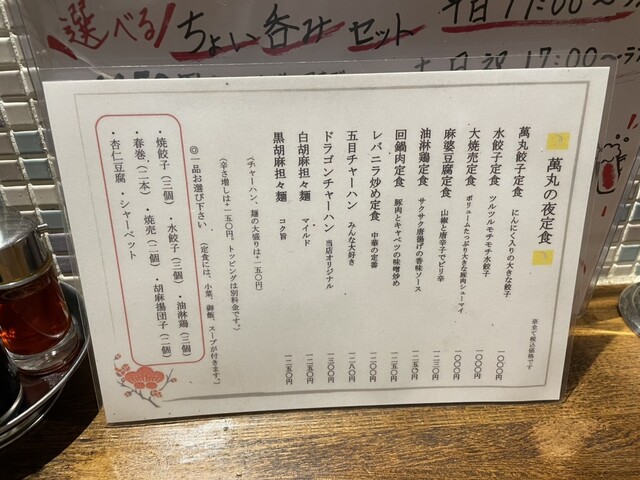 選べる ちょい呑み セット
平日 17:00〜
土日祝 17:00〜
萬丸の夜定食
※全て税込価格です
萬丸餃子定食 にんにく入りの大きな餃子 一〇〇〇円
水餃子定食 ツルツルモチモチ水餃子 一〇〇〇円
大焼売定食 ボリュームたっぷり大きな豚肉シューマイ 一〇〇〇円
麻婆豆腐定食 山椒と唐辛子でピリ辛
油淋鶏定食 サクサク唐揚げの香味ソース
回鍋肉定食 豚肉とキャベツの味噌炒め 一二五〇円
レバニラ炒め定食 中華の定番 一二〇〇円
五目チャーハン みんな大好き 一二八〇円
ドラゴンチャーハン 当店オリジナル 一三〇〇円
白胡麻担々麺 マイルド 一二五〇円
黒胡麻担々麺 コク旨 一二五〇円
(チャーハン、麺の大盛りは+一五〇円)
(辛さ増しは+二五〇円、トッピングは別料金です。)
◎一品お選び下さい (定食には、小菜、御飯、スープが付きます。)
・焼餃子(三個) ・水餃子(三個) ・油淋鶏(三個)
・春巻(二本) ・焼売(二個) ・胡麻揚団子(二個)
・杏仁豆腐 ・シャーベット